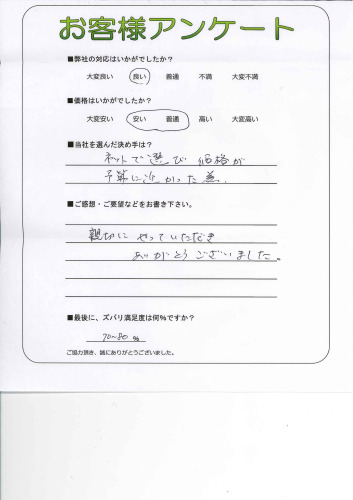 お客様アンケート
■弊社の対応はいかがでしたか？
大変良い 良い 普通 不満 大変不満
■価格はいかがでしたか？
大変安い 安い 普通 高い 大変高い
■当社を選んだ決め手は？
ネットで選び 価格が
予算に近かった為.
■ご感想・ご要望などをお書き下さい。
親切に やっていただき
ありがとう ございました。
■最後に、ズバリ満足度は何％ですか？
70~80 %
ご協力頂き、誠にありがとうございました。